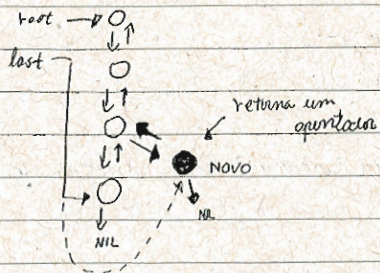 root
last
retorna um
apontador
NOVO
NIL
NIL